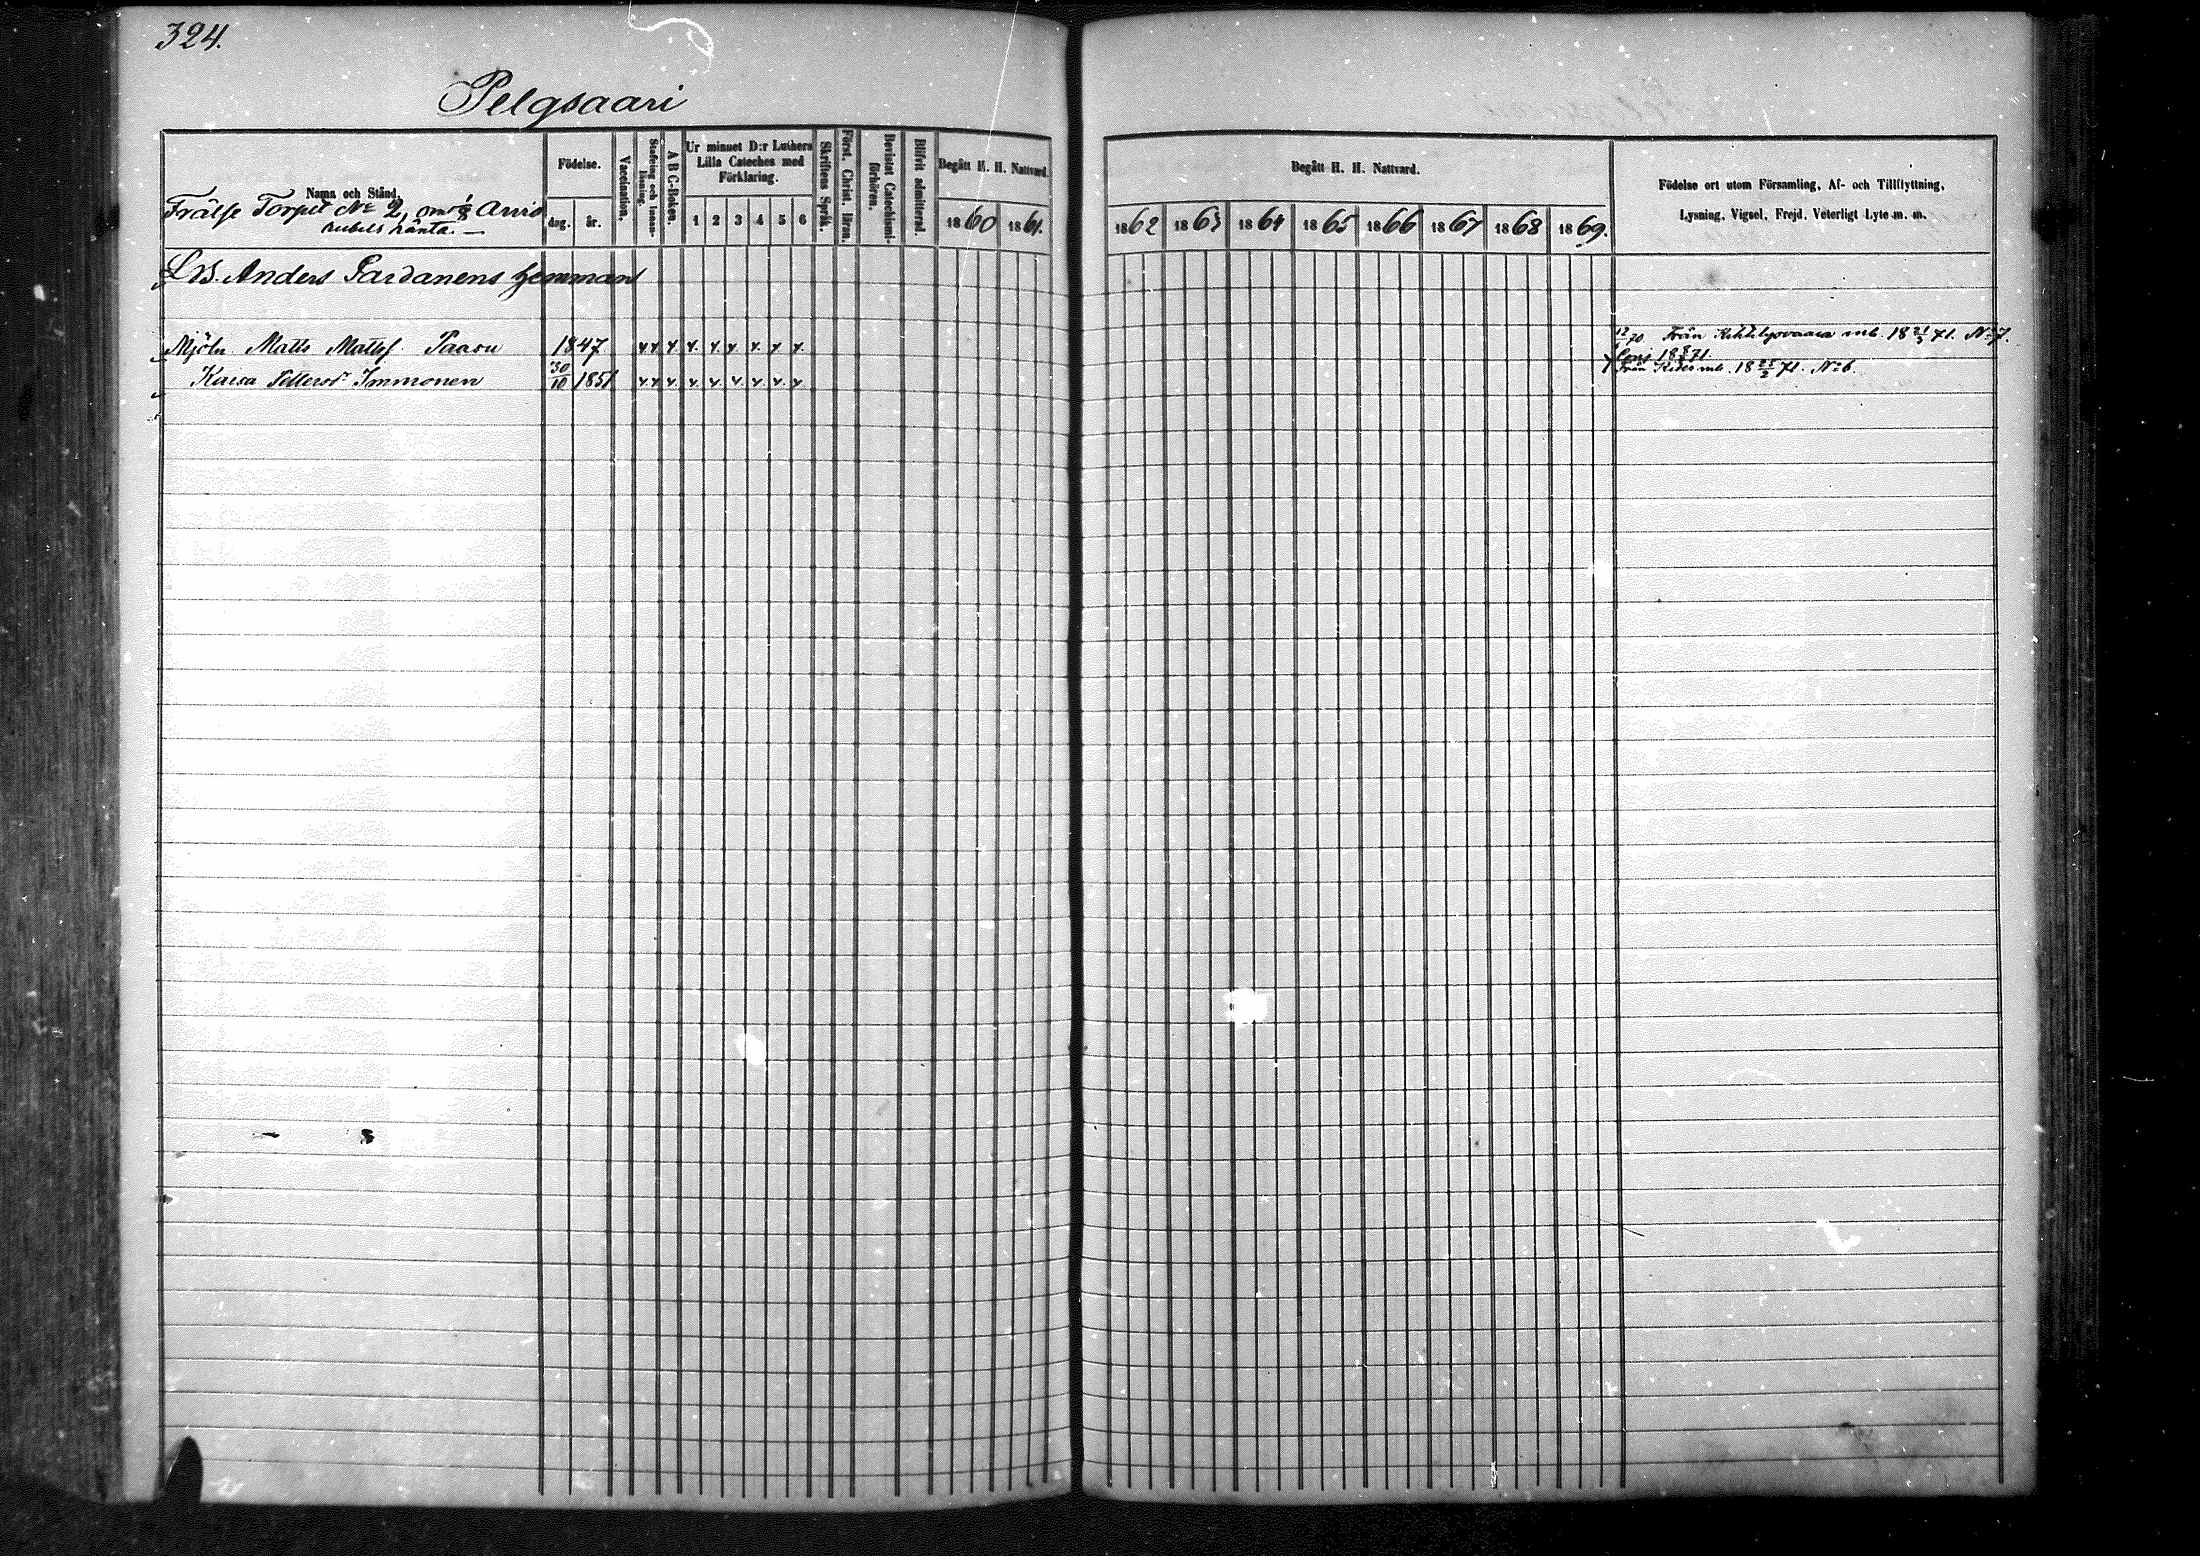 324.
Pelgsaari
Nama och Stånd.
Frälse Torpet No 2, om 1/8 Arvio
rubels ränta. —
Födelse.
dag. år.
Vaccination.
Stafning och Innan-
läsning.
A B C-Boken.
Ur minnet D:r Luthers
Lilla Cateches med
Förklaring.
1 2 3 4 5 6
Skriftens Språk.
Först. Christ. Hran.
Bevistat Catechismi-
förhören.
Blifvit admitterad.
Begått H. H. Nattvard.
1860 1861.
Begått H. H. Nattvard.
1862 1863 1864 1865 1866 1867 1868 1869.
Födelse ort utom Församling, Af- och Tillflyttning,
Lysning, Vigsel, Frejd, Veterligt Lyte m. m.
LB. Anders Pardanens hemman
Mjöln Matts Mattss. Paasu 1847
12/70 Från Kihtelysvaara mb. 18 21/3 71. No 7.
71.
Kaisa Pettersdr Immonen 30/10 1851
Från Kides mb. 18 25/2 71. No 6.